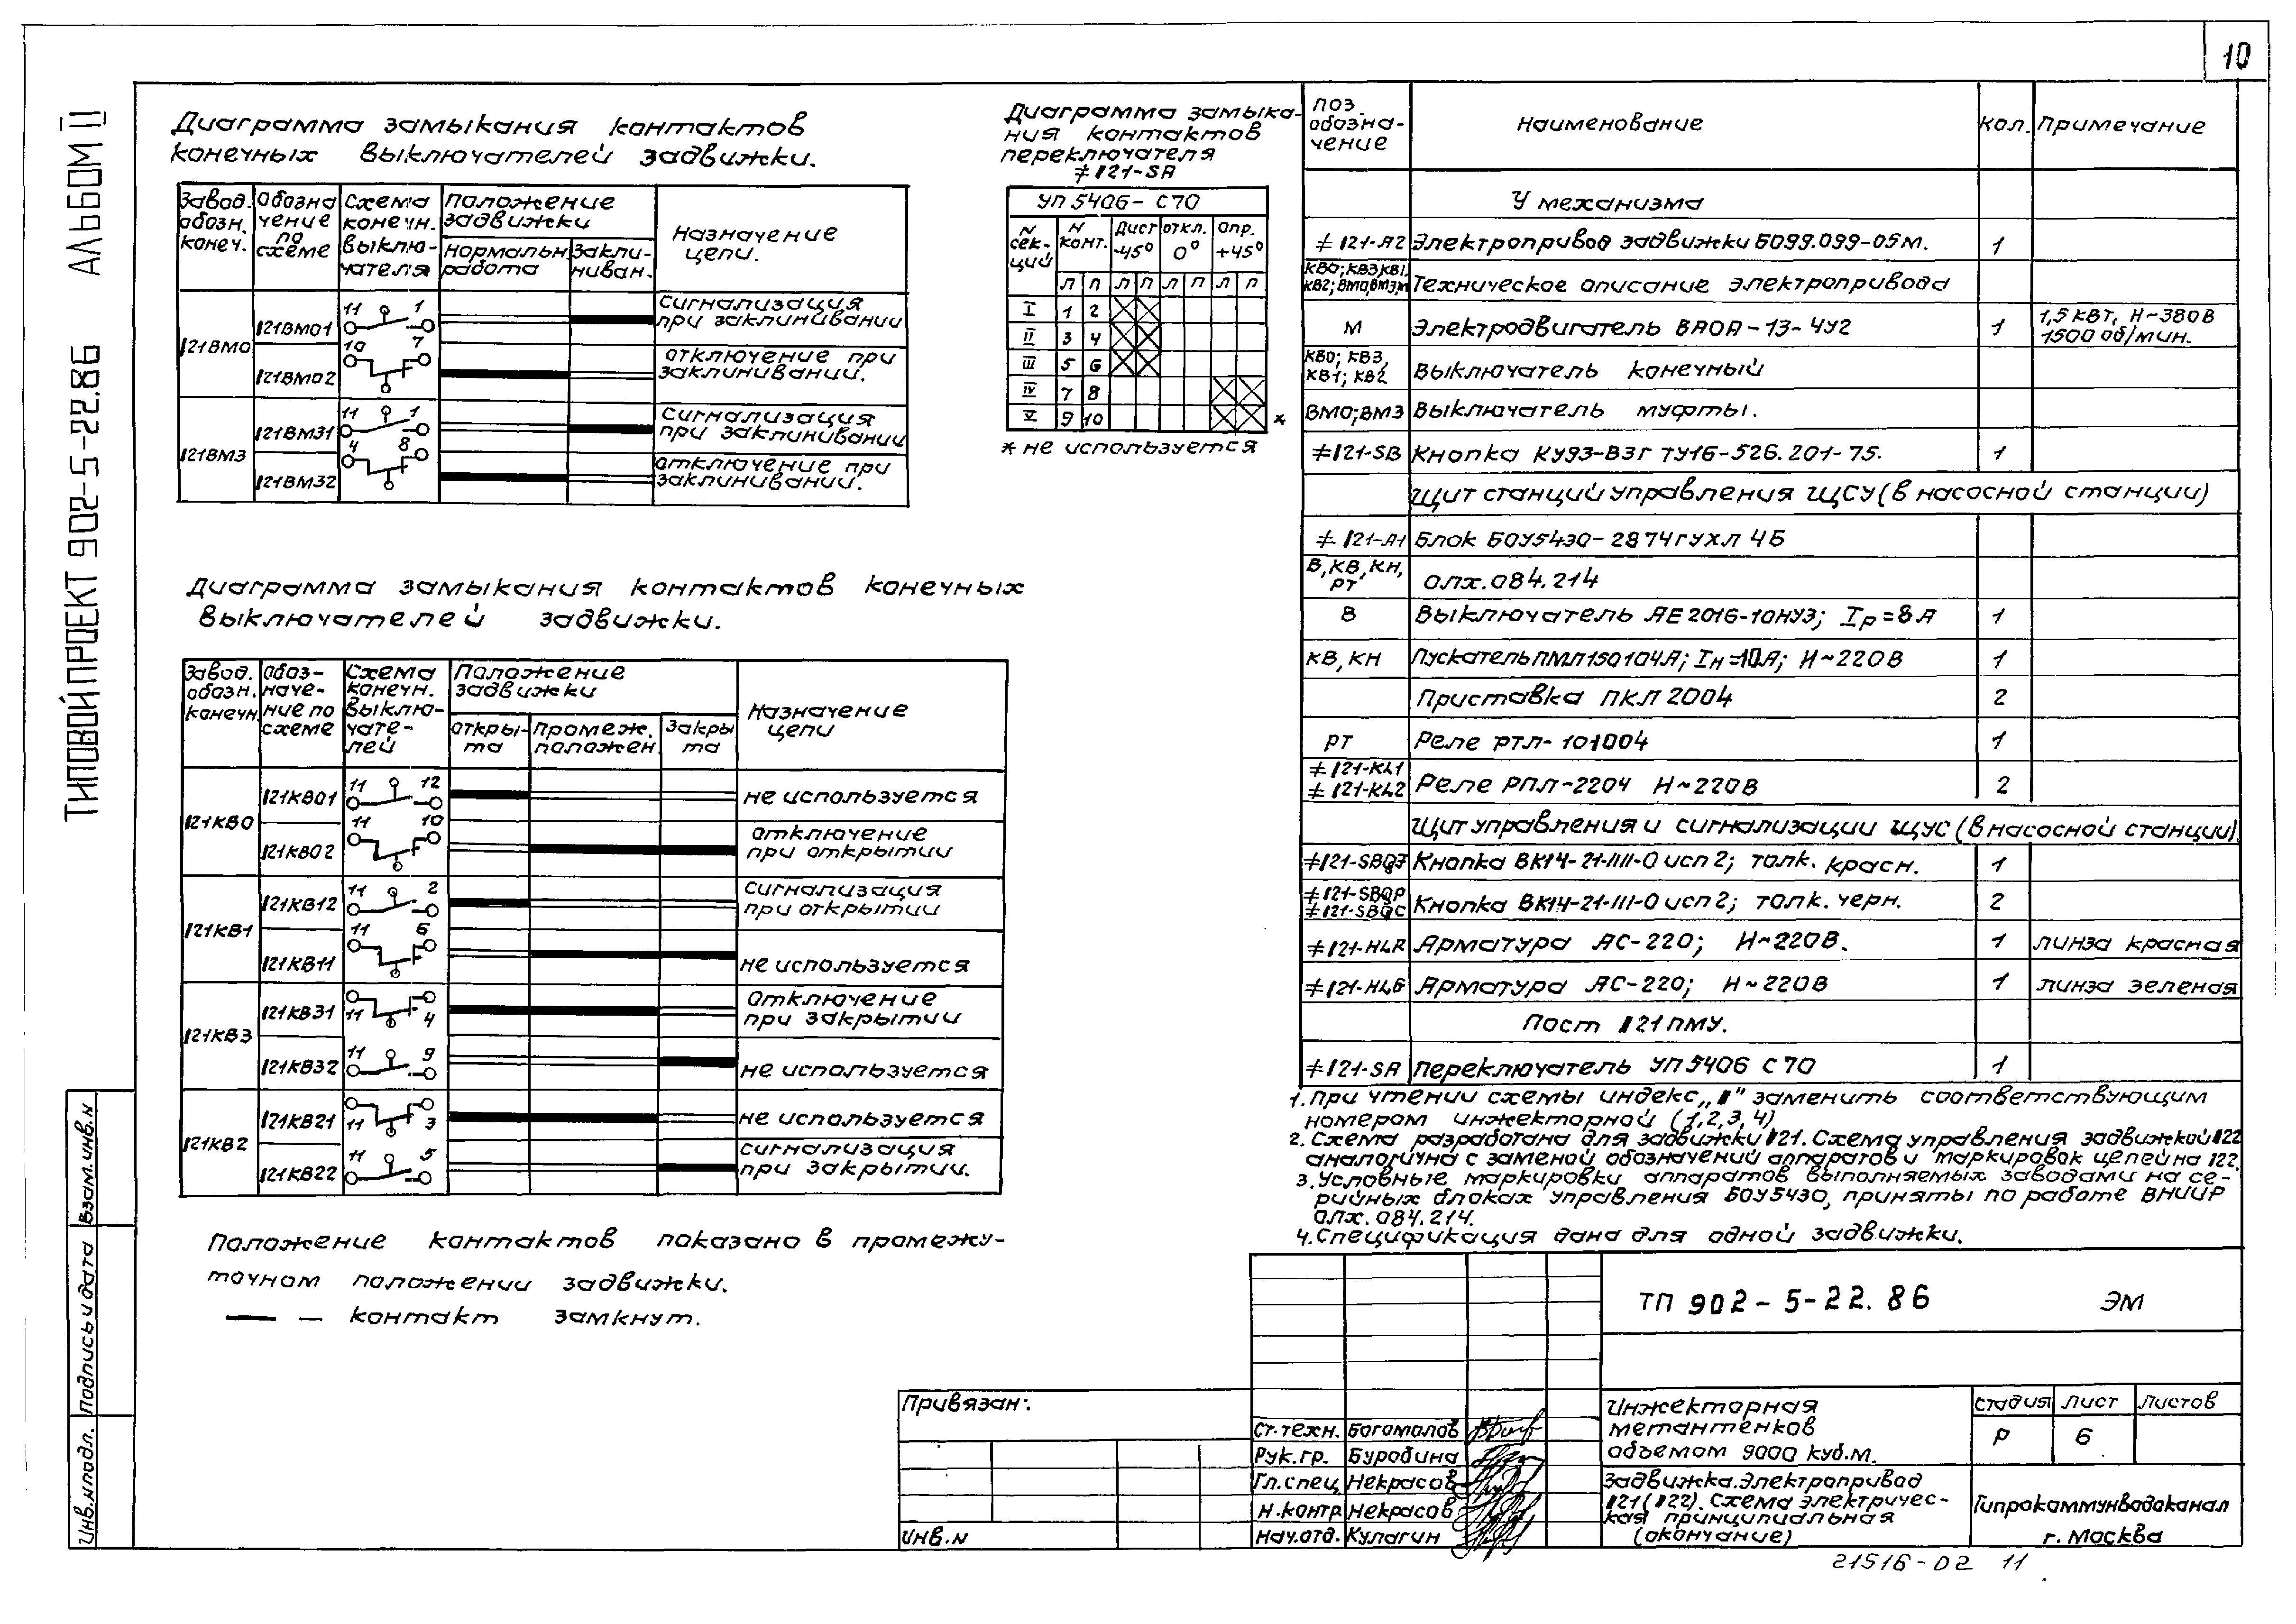 10
АЛЬБОМ II
ТИПОВОЙ ПРОЕКТ 902-5-22.86
Диаграмма замыкания контактов
конечных выключателей задвижки.
Завод. обозн. конеч.
Обозначение по схеме
Схема конечн. выключателя
Положение задвижки
Нормальн. работа
Заклиниван.
Назначение цепи.
121ВМО
121ВМ01
11 1
сигнализация при заклинивании
121ВМ02
10 7
отключение при заклинивании.
121ВМ3
121ВМ31
11 1
сигнализация при заклинивании
121ВМ32
4 8
отключение при заклинивании.
Диаграмма замыка-
ния контактов
переключателя
≠121-SA
УП 5406-С70
N сек-ций
N конт.
Дист -45°
откл. 0°
опр. +45°
л п л п л п л п
I 1 2
II 3 4
III 5 6
IV 7 8
V 9 10 *
* не используется
Диаграмма замыкания контактов конечных
выключателей задвижки.
Завод. обозн. конечн.
Обоз-наче-ние по схеме
Схема конечн. выклю-чате-лей
Положение задвижки
откры-та
Промеж. положен
Закры та
Назначение цепи
121КВ0
121КВ01
11 12
не используется
121КВ02
11 10
отключение при открытии
121КВ1
121КВ12
11 2
сигнализация при открытии
121КВ11
11 6
не используется
121КВ3
121КВ31
11 4
отключение при закрытии
121КВ32
11 9
не используется
121КВ2
121КВ21
11 3
не используется
121КВ22
11 5
сигнализация при закрытии.
Положение контактов показано в промежу-
точном положении задвижки.
— контакт замкнут.
поз. обозна-чение
Наименование
Кол.
Примечание
У механизма
≠121-А2 Электропривод задвижки Б099.099-05м. 1
КВ0; КВ3, КВ1, КВ2; ВМ0, ВМ3, М Техническое описание электропривода
М Электродвигатель ВАОА-13-4У2 1 1,5 кВт, Н~380В 1500 об/мин.
КВ0; КВ3, КВ1; КВ2 Выключатель конечный
ВМ0; ВМ3 Выключатель муфты.
≠121-SB Кнопка КУ93-ВЗГ ТУ16-526.201-75. 1
Щит станций управления ЩСУ (в насосной станции)
≠121-А1 Блок БОУ5430-2874ГУХЛ 4Б
В, КВ, КН, РТ ОЛХ.084.214
В Выключатель АЕ2016-10НУ3; Iр=8А 1
КВ, КН Пускатель ПМЛ150104А; Iн=10А; И~220В 1
Приставка ПКЛ 2004 2
РТ Реле РТЛ-101004 1
≠121-KL1 ≠121-KL2 Реле РПЛ-2204 И~220В 2
Щит управления и сигнализации ЩУС (в насосной станции).
Кнопка ВК14-21-1111-0 исп 2; толк. красн. 1
Кнопка ВК14-21-111-0 исп 2; толк. черн. 2
≠121-HLR Арматура АС-220; И~220В. 1 линза красная
≠121-HLG Арматура АС-220; И~220В 1 линза зеленая
Пост 121ПМУ.
≠121-SA Переключатель УП5406 С70 1
1. При чтении схемы индекс „ " заменить соответствующим
номером инжекторной (1,2,3,4)
2. Схема разработана для задвижки 121. Схема управления задвижкой 122
аналогична с заменой обозначений аппаратов и маркировок цепей на 122.
3. Условные маркировки аппаратов выполняемых заводами на се-
рийных блоках управления БОУ5430, приняты по работе ВНИИР
ОЛХ.084.214.
4. Спецификация дана для одной задвижки.
ТП 902-5-22.86 ЭМ
Привязан:
Инв.N
Ст.техн. Богомолов
Рук.гр. Буробина
Гл.спец Некрасов
Н.контр Некрасов
Нач.отд. Кулагин
Инжекторная
метантенков
объемом 9000 куб.м.
Стадия Лист Листов
Р 6
Задвижка. Электропривод
121 (122). Схема электричес-
кая принципиальная
(окончание)
Гипрокоммунводоканал
г. Москва
21516-02 11
Взам.инв.N
Подпись и дата
Инв.N подл.